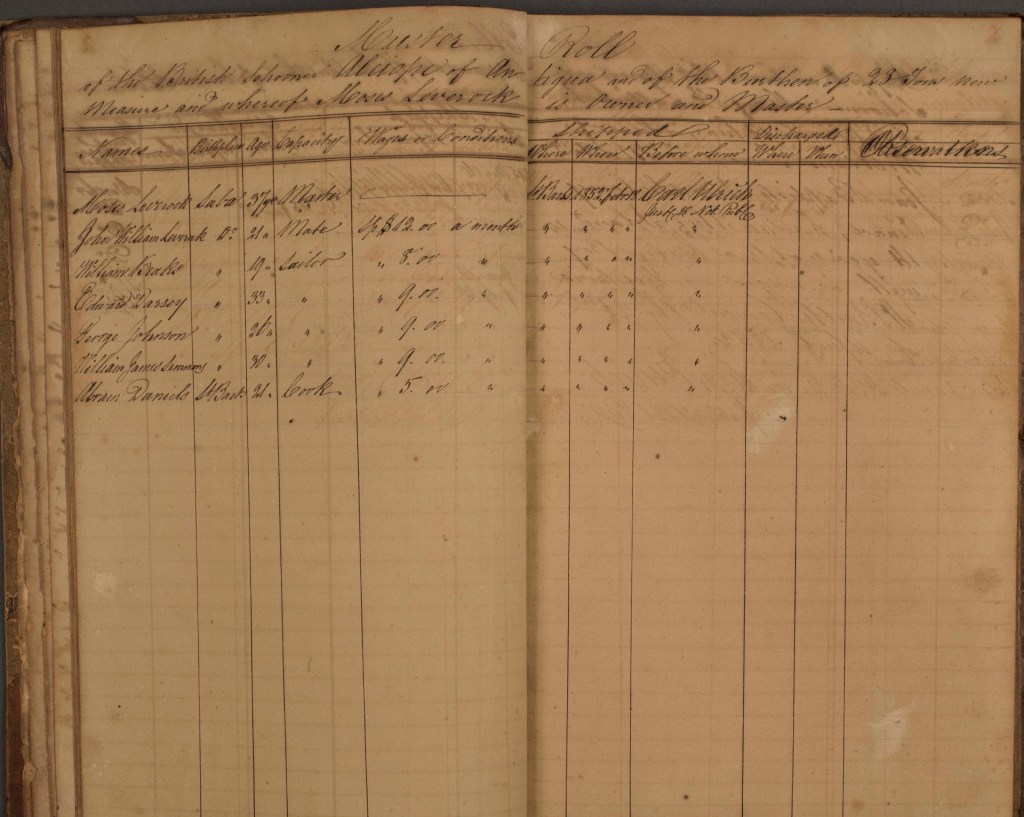 Muster Roll
of the British Schooner Alciope of Antigua and of the Burthen of 23 Tons new
Measure and whereof Moses Leverock is Owner and Master
Names Age Capacity Wages or Conditions Shipped Discharged Observations
Where When Before whom Where When
Moses Leverock Saba 37 Master St Barts 1852 Carl Ulrich
Just: & Not: Public
John William Leverock Do 21 " Mate Sp $ 12. 00 a month " " " " "
William Beaks " 19 " Sailor " 8. 00 " " " " " "
Edward Darsey " 33 " " " 9. 00. " " " " " "
George Johnson " 26 " " " 9. 00 " " " " " "
William James Simmons " 30 " " " 9. 00. " " " " " "
Abram Daniels St Barts 21 " Cook " 5. 00 " " " " " "